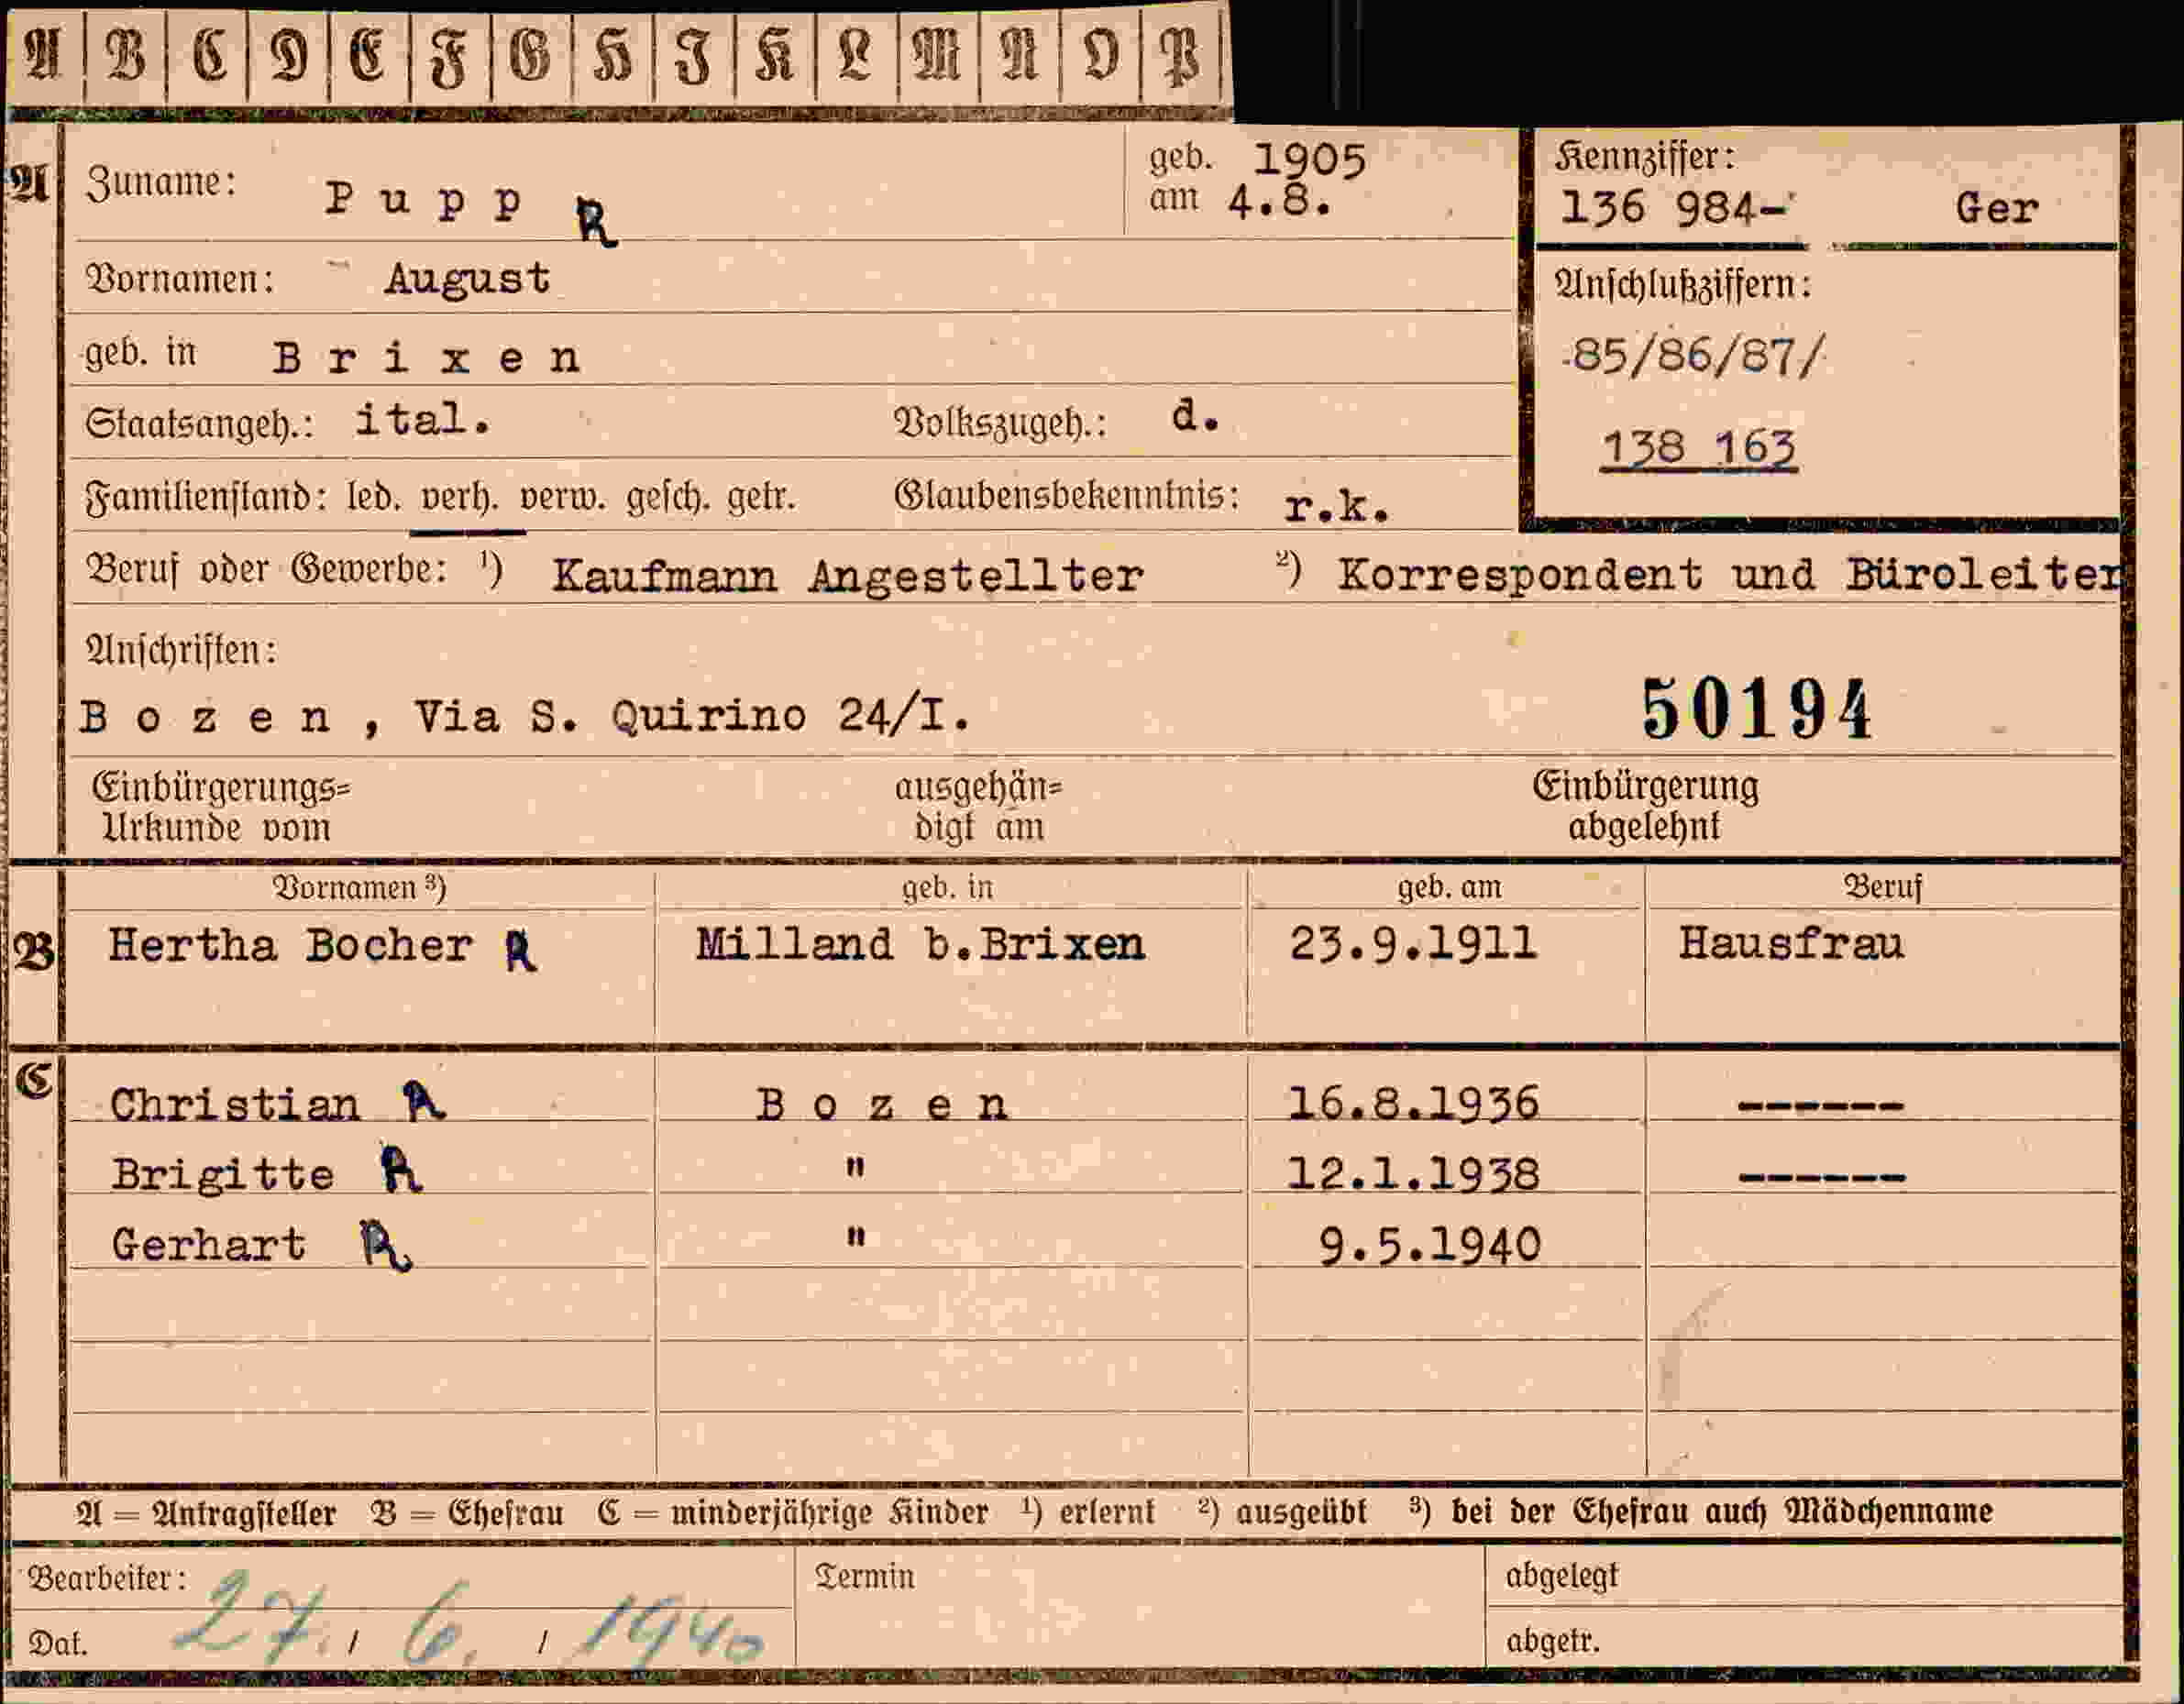 A B C D E F G H I K L M N O P
A Zuname: Pupp R geb. 1905 am 4.8.
Kennziffer:
136 984- Ger
Vornamen: August
Anschlußziffern:
-85/86/87/
138 163
geb. in Brixen
Staatsangeh.: ital. Volkszugeh.: d.
Familienstand: led. verh. verw. gesch. getr. Glaubensbekenntnis: r.k.
Beruf oder Gewerbe: ¹) Kaufmann Angestellter ²) Korrespondent und Büroleiter
Anschriften:
Bozen, Via S. Quirino 24/I. 50194
Einbürgerungs= ausgehän= Einbürgerung
Urkunde vom digt am abgelehnt
Vornamen ³) geb. in geb. am Beruf
B Hertha Bocher R Milland b.Brixen 23.9.1911 Hausfrau
C Christian R Bozen 16.8.1936 ------
Brigitte R " 12.1.1938 ------
Gerhart R " 9.5.1940
A = Antragsteller B = Ehefrau C = minderjährige Kinder ¹) erlernt ²) ausgeübt ³) bei der Ehefrau auch Mädchenname
Bearbeiter: Termin abgelegt
Dat. 27. / 6. / 1940 abgetr.